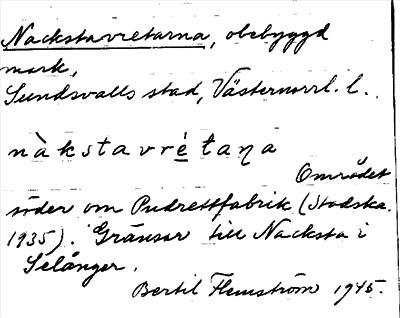 Nackstavretarna, obebyggd
mark,
Sundsvalls stad, Västernorrl. l.
nàkstavrét̲aṇa
Området
söder om Pudrettfabrik (Stadska.
1935). Gränsar till Nacksta i
Selånger.
Bertil Flemström 1945.